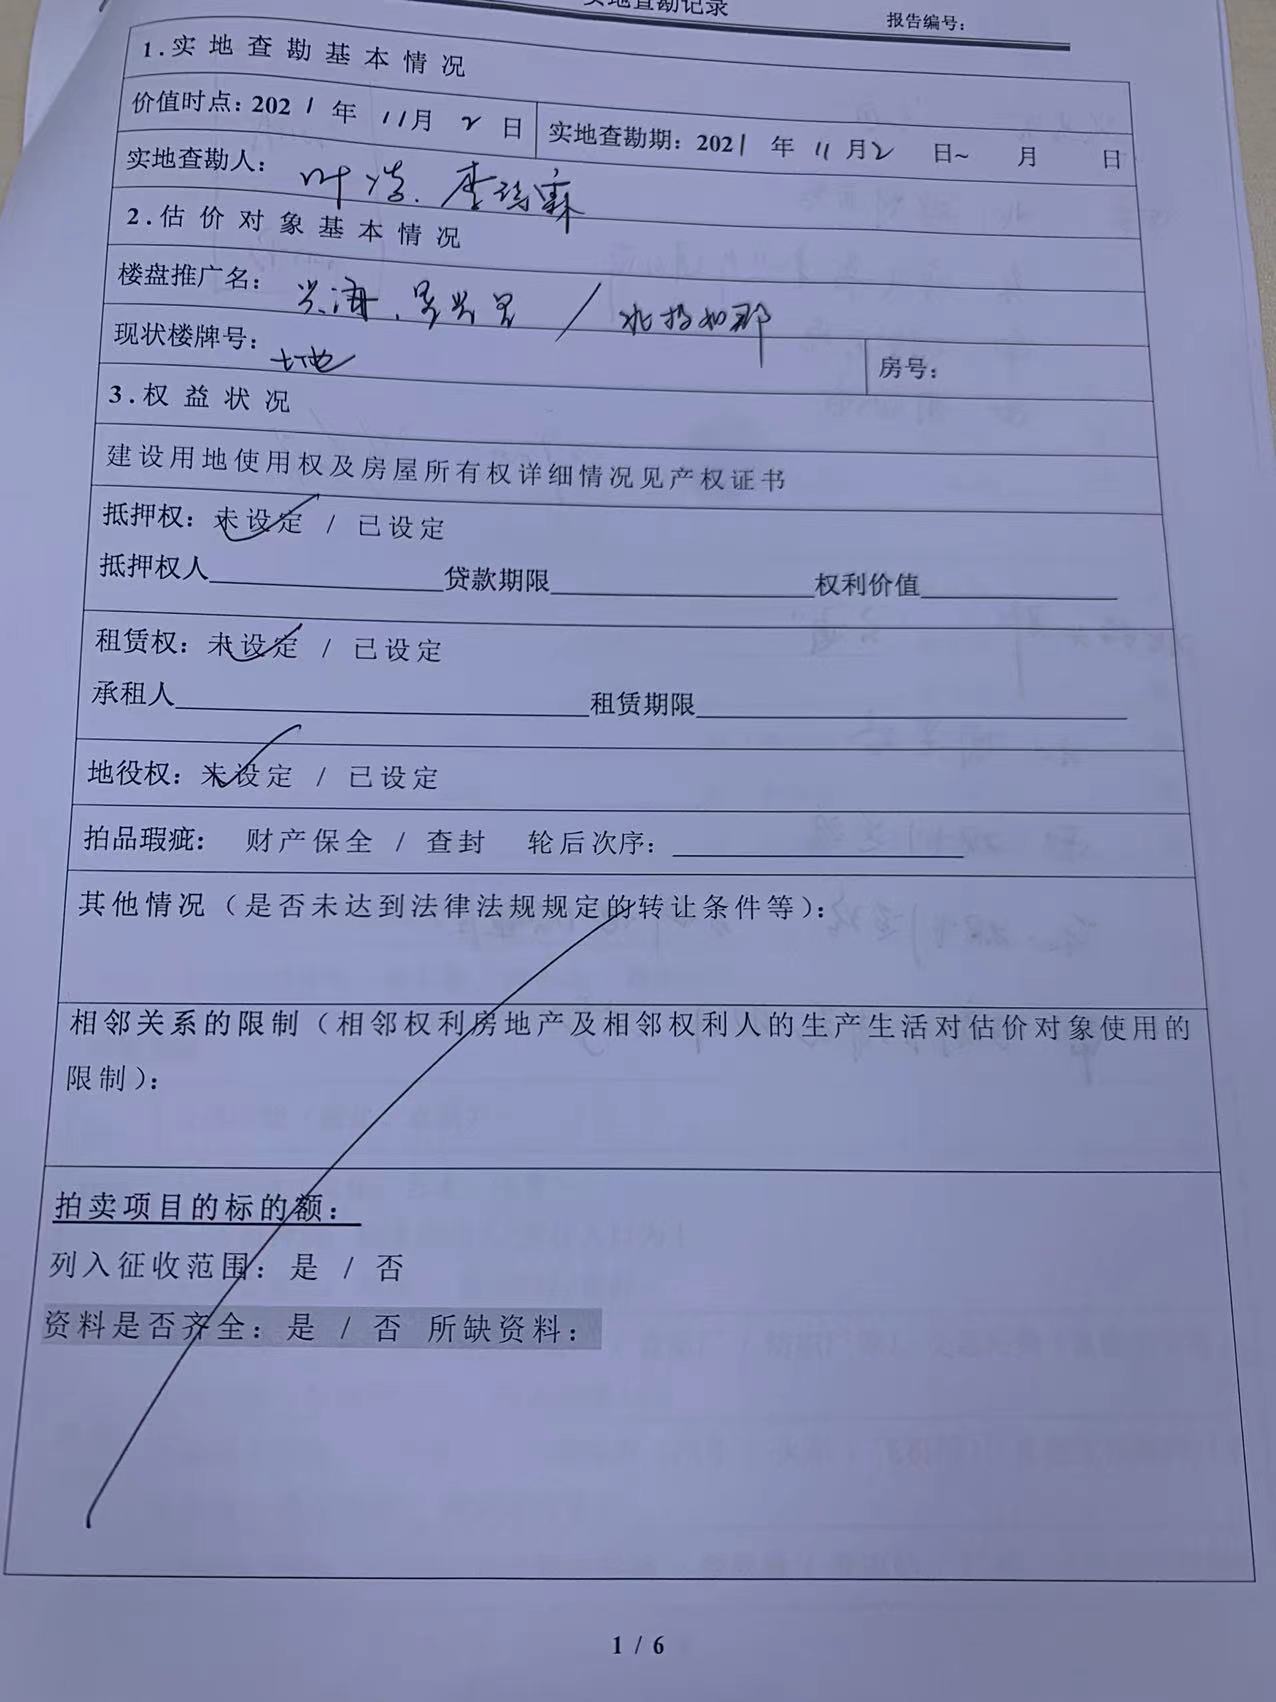 实地查勘记录
报告编号：
1.实地查勘基本情况
价值时点：2021年11月2日 实地查勘期：2021年11月2日~ 月 日
实地查勘人： 叶
2.估价对象基本情况
楼盘推广名： 兴海、 /
现状楼牌号： 土地 房号：
3.权益状况
建设用地使用权及房屋所有权详细情况见产权证书
抵押权：未设定 / 已设定
抵押权人________贷款期限________权利价值________
租赁权：未设定 / 已设定
承租人________租赁期限________
地役权：未设定 / 已设定
拍品瑕疵： 财产保全 / 查封 轮后次序：________
其他情况（是否未达到法律法规规定的转让条件等）：
相邻关系的限制（相邻权利房地产及相邻权利人的生产生活对估价对象使用的
限制）：
拍卖项目的标的额：
列入征收范围：是 / 否
资料是否齐全：是 / 否 所缺资料：
1 / 6